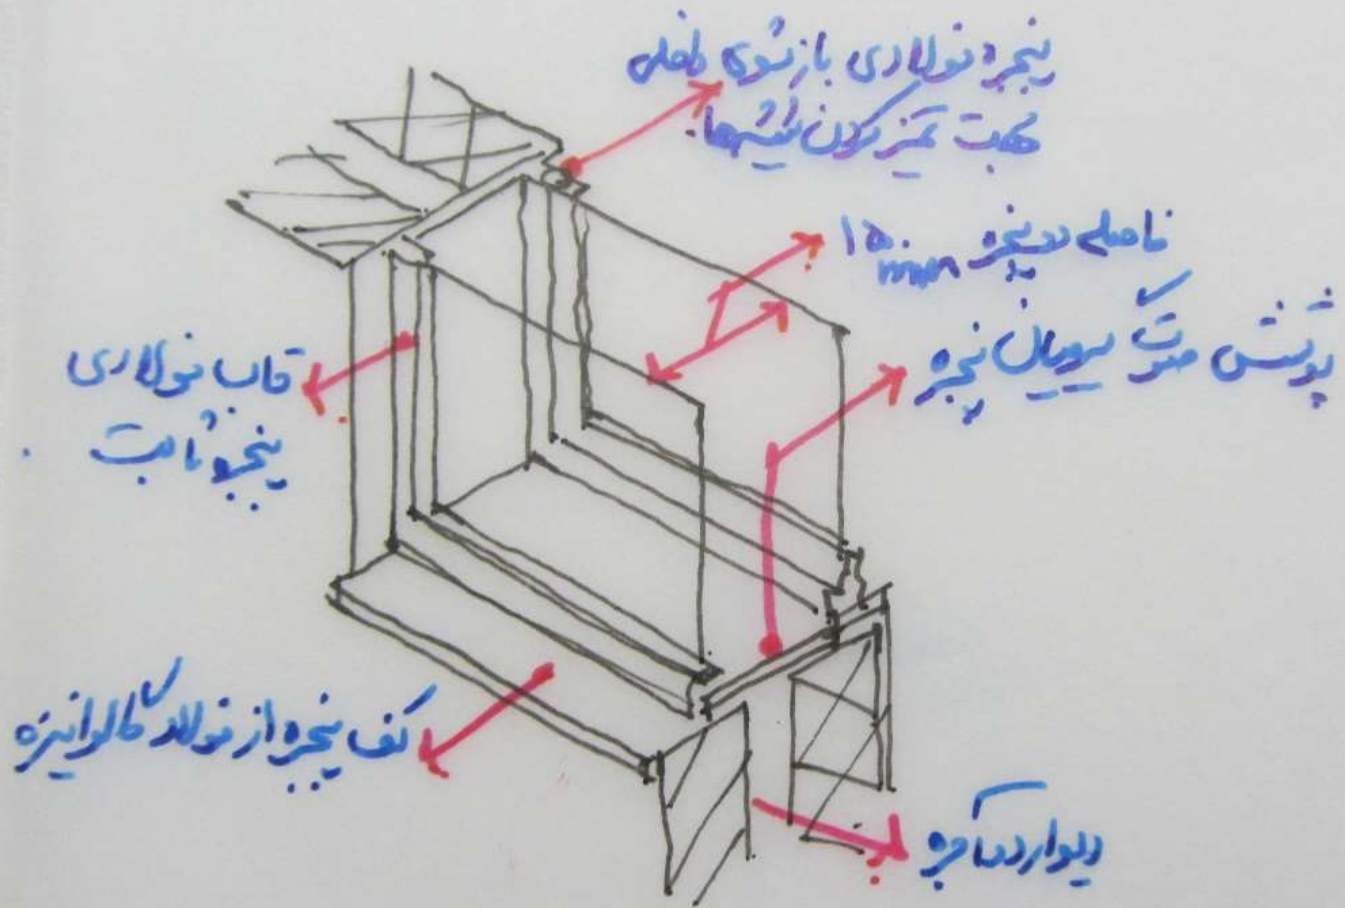 پنجره فولادی بازشوی داخلی
جهت تمیز کردن شیشه‌ها.
فاصله دو پنجره ۱۵۰mm
پوشش صوت‌گیر میان پنجره
قاب فولادی
پنجره ثابت
کف پنجره از فولاد گالوانیزه
دیوار دوجداره